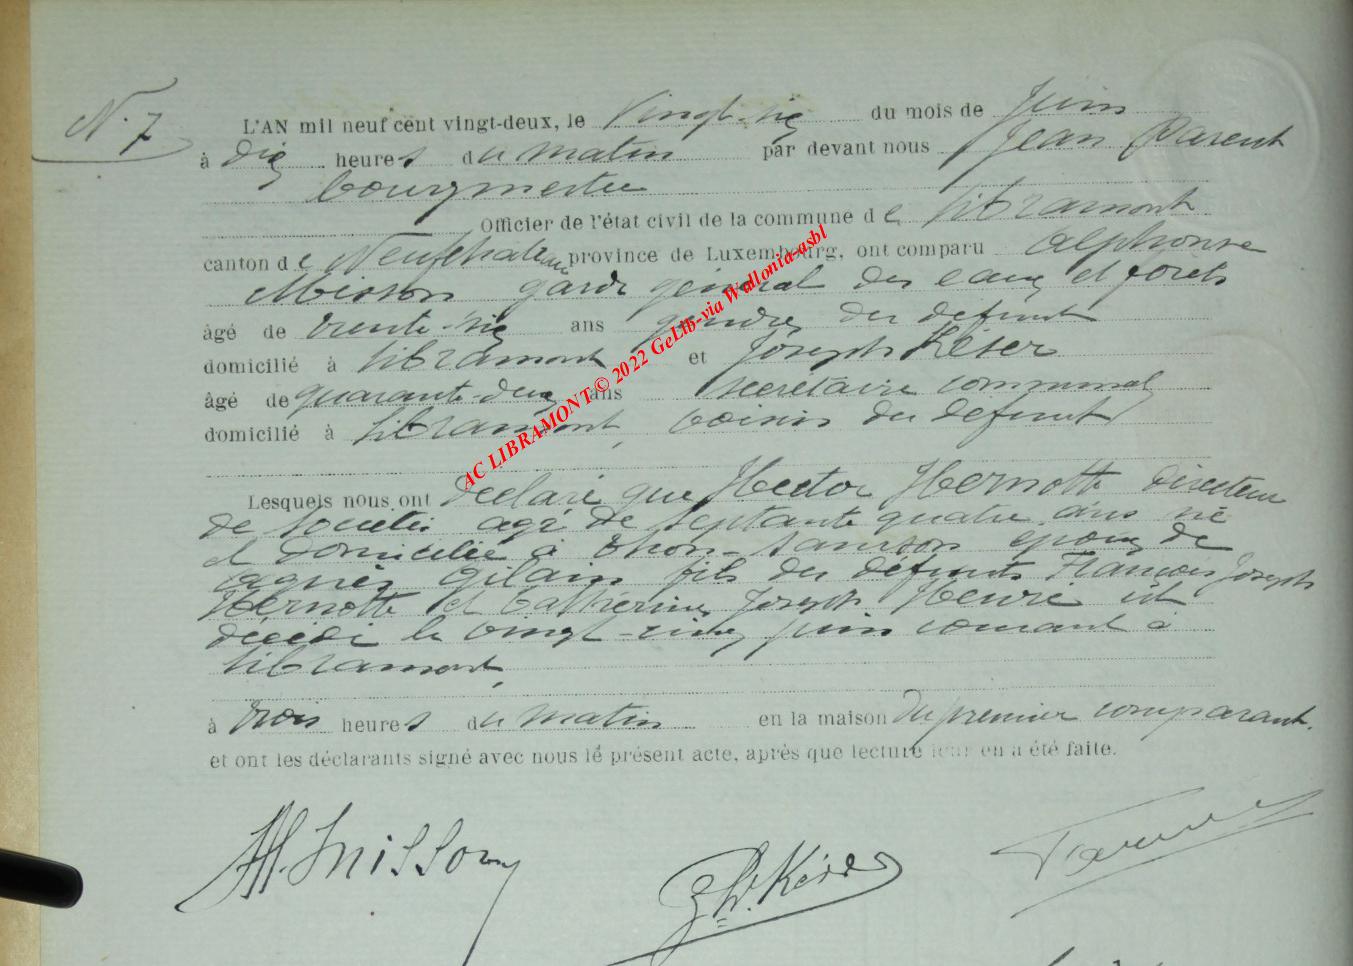 N. 7
L'AN mil neuf cent vingt-deux, le Vingt-six du mois de Juin
à dix heures du matin par devant nous Jean Parent
bourgmestre
Officier de l'état civil de la commune de Libramont
canton de Neufchateau province de Luxembourg, ont comparu Alphonse
Misson garde général des eaux et forêts
âgé de trente-six ans gendre du défunt
domicilié à Libramont et Joseph Késer
âgé de quarante-deux ans secrétaire communal
domicilié à Libramont, voisin du défunt
Lesquels nous ont déclaré que Hector Hernotte directeur
de société agé de septante quatre ans né
et domicilié à Thon-Samson époux de
Agnès Gilain fils des défunts François Joseph
Hernotte et Catherine Joseph Henre est
décédé le vingt-cinq juin courant à
Libramont,
à trois heures du matin en la maison du premier comparant.
et ont les déclarants signé avec nous le présent acte, après que lecture leur en a été faite.
AC LIBRAMONT © 2022 GeLib-via Wallonia-asbl